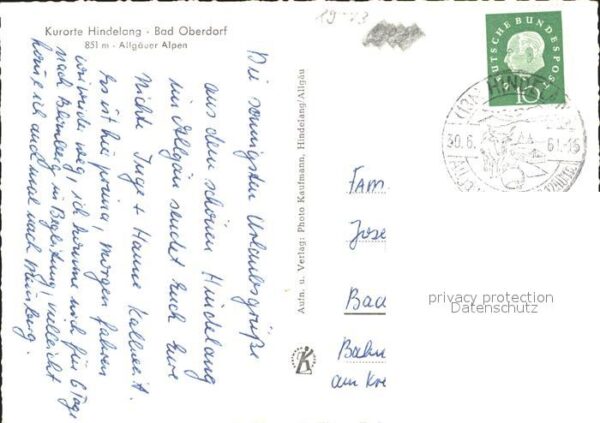 Kurorte Hindelang · Bad Oberdorf
851 m - Allgäuer Alpen
19-13
DEUTSCHE BUNDESPOST
10
30.6. 61.-15
Die sonnigsten Urlaubsgrüße
aus dem schönen Hindelang
im Allgäu sendet Euch Eure
Nichte Inge + Hanne
Es ist hier prima, morgen fahren
wir wieder weg, ich komme noch für 6 Tage
nach in Begleitung, vielleicht
komme ich auch mal nach
Aufn. u. Verlag: Photo Kaufmann, Hindelang/Allgäu
K
Fam.
Jose
Bad
Bahn
am Kre
privacy protection
Datenschutz